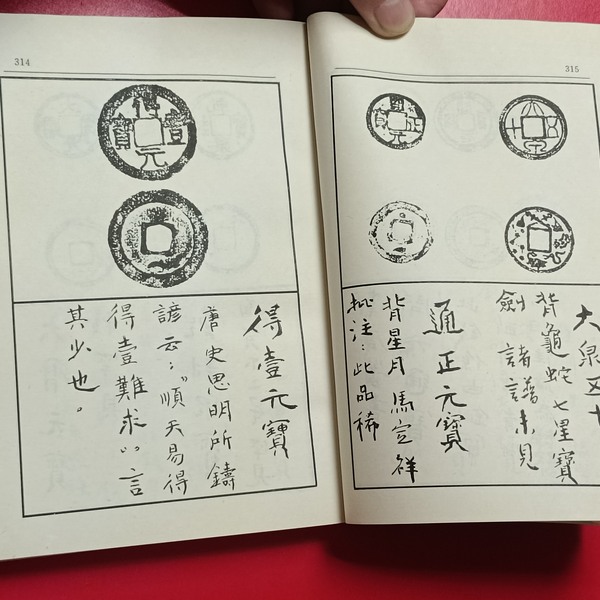 314
得壹元寶
得壹元寶
唐史思明所鑄
諺云："順天易得
得壹難求"言
其少也。
315
通正元寶
大泉五十
大泉五十
背龜蛇七星寶
劍諸譜未見
通正元寶
背星月馬定祥
批注：此品稀